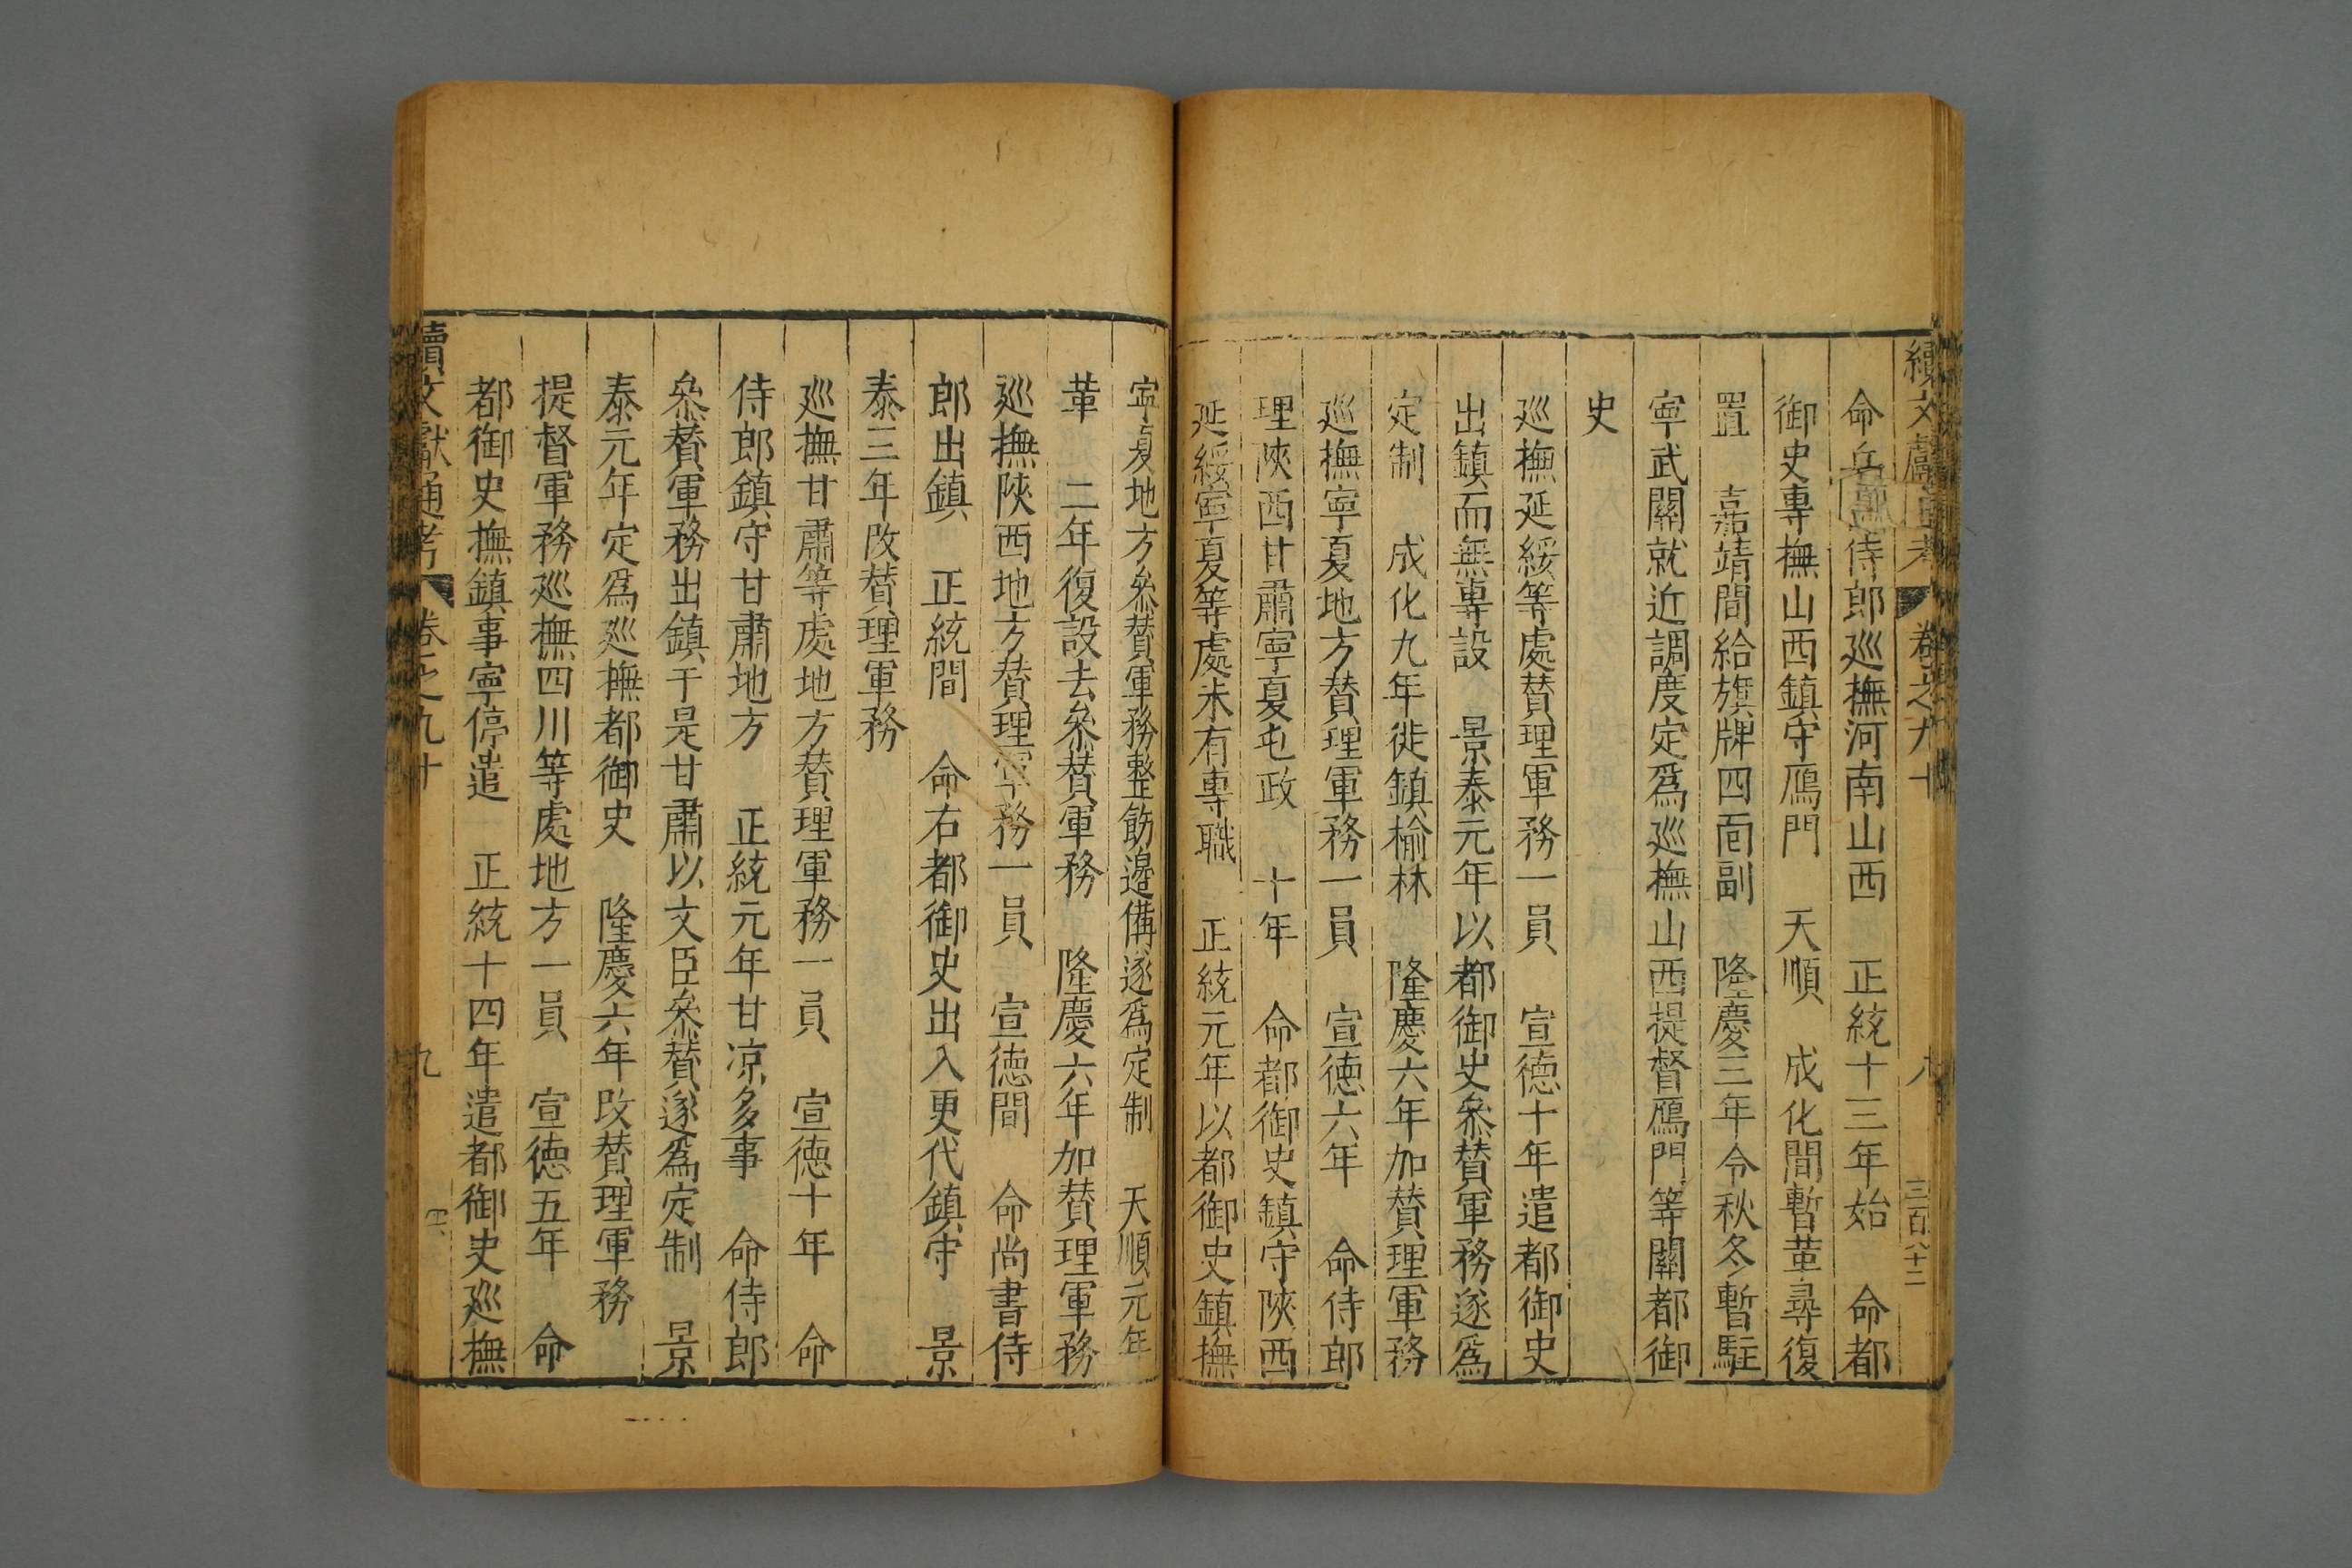 續文獻通考 卷之九十 八 三百八十二
命兵部侍郎巡撫河南山西 正統十三年始 命都
御史專撫山西鎮守鴈門 天順 成化間暫革尋復
置 嘉靖間給旗牌四面副 隆慶三年令秋冬暫駐
寧武關就近調度定爲巡撫山西提督鴈門等關都御
史
巡撫延綏等處賛理軍務一員 宣德十年遣都御史
出鎮而無專設 景泰元年以都御史叅賛軍務遂爲
定制 成化九年徙鎮榆林 隆慶六年加賛理軍務
巡撫寧夏地方賛理軍務一員 宣德六年 命侍郎
理陝西甘肅寧夏屯政 十年 命都御史鎮守陝西
延綏寧夏等處未有專職 正統元年以都御史鎮撫
寧夏地方叅賛軍務整飭邊備遂爲定制 天順元年
革 二年復設去叅賛軍務 隆慶六年加賛理軍務
巡撫陝西地方賛理軍務一員 宣德間 命尚書侍
郎出鎮 正統間 命右都御史出入更代鎮守 景
泰三年改賛理軍務
巡撫甘肅等處地方賛理軍務一員 宣德十年 命
侍郎鎮守甘肅地方 正統元年甘凉多事 命侍郎
叅賛軍務出鎮于是甘肅以文臣叅賛遂爲定制 景
泰元年定爲巡撫都御史 隆慶六年改賛理軍務
提督軍務巡撫四川等處地方一員 宣德五年 命
都御史撫鎮事寧停遣 正統十四年遣都御史巡撫
續文獻通考 卷之九十 九